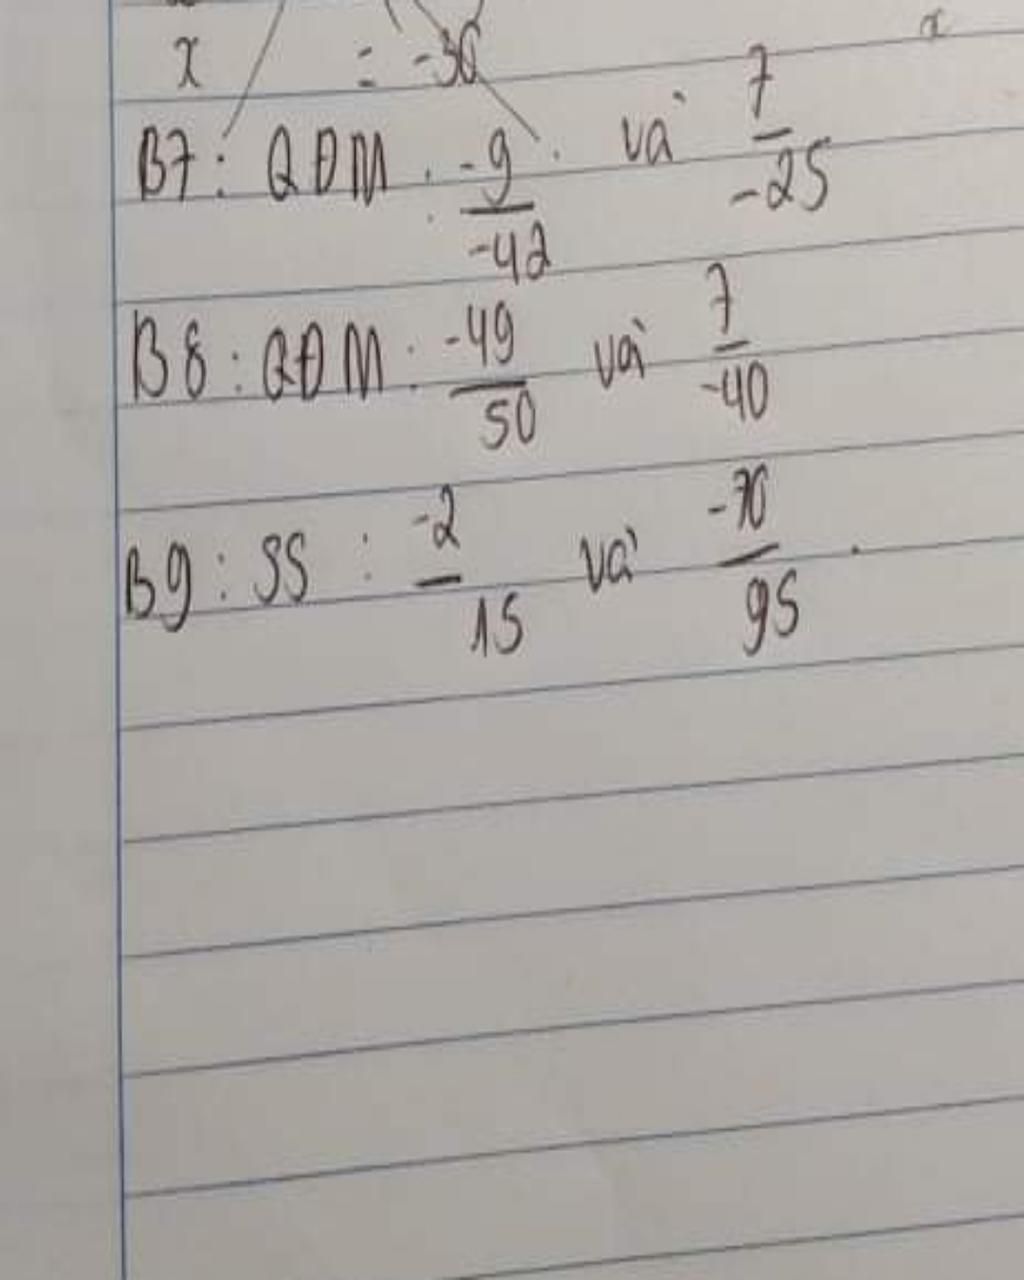 x = -36
B7: QĐM: -9/-42 và 7/-25
B8: QĐM: -49/50 và 7/-40
B9: SS: -2/15 và -70/95.